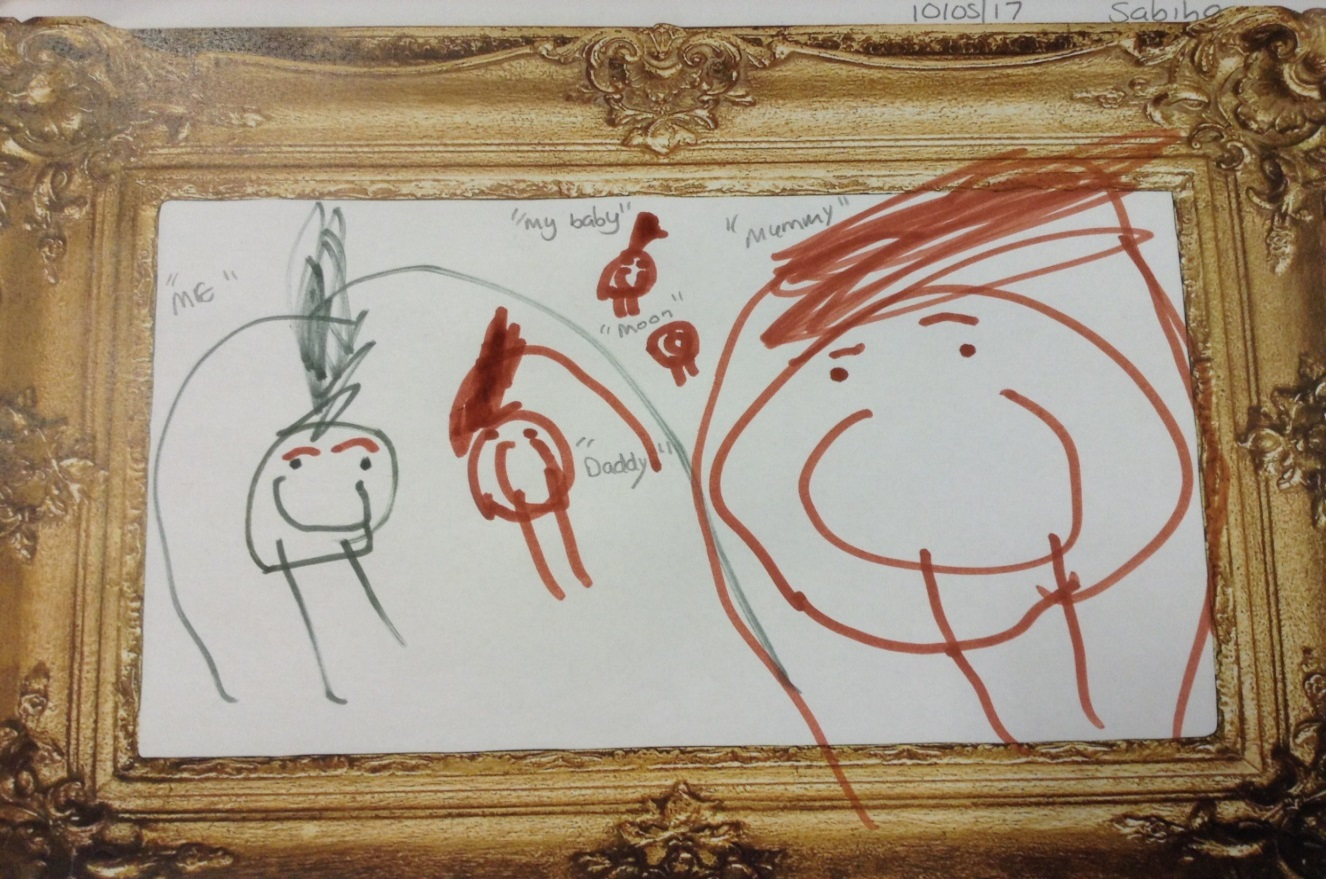 10/05/17 Sabiha
"ME"
"My baby"
"Mummy"
"Moon"
"Daddy"